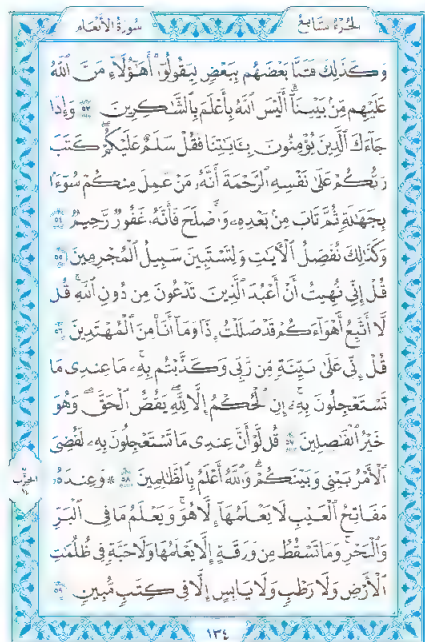 الجزء السابع سورة الأنعام
وَكَذَٰلِكَ فَتَنَّا بَعْضَهُم بِبَعْضٍ لِّيَقُولُوٓا۟ أَهَـٰٓؤُلَآءِ مَنَّ ٱللَّهُ
عَلَيْهِم مِّنۢ بَيْنِنَآ أَلَيْسَ ٱللَّهُ بِأَعْلَمَ بِٱلشَّـٰكِرِينَ ٥٣ وَإِذَا
جَآءَكَ ٱلَّذِينَ يُؤْمِنُونَ بِـَٔايَـٰتِنَا فَقُلْ سَلَـٰمٌ عَلَيْكُمْ كَتَبَ
رَبُّكُمْ عَلَىٰ نَفْسِهِ ٱلرَّحْمَةَ أَنَّهُۥ مَنْ عَمِلَ مِنكُمْ سُوٓءًۢا
بِجَهَـٰلَةٍ ثُمَّ تَابَ مِنۢ بَعْدِهِۦ وَأَصْلَحَ فَأَنَّهُۥ غَفُورٌ رَّحِيمٌ ٥٤
وَكَذَٰلِكَ نُفَصِّلُ ٱلْـَٔايَـٰتِ وَلِتَسْتَبِينَ سَبِيلُ ٱلْمُجْرِمِينَ ٥٥
قُلْ إِنِّى نُهِيتُ أَنْ أَعْبُدَ ٱلَّذِينَ تَدْعُونَ مِن دُونِ ٱللَّهِ قُل
لَّآ أَتَّبِعُ أَهْوَآءَكُمْ قَدْ ضَلَلْتُ إِذًا وَمَآ أَنَا۠ مِنَ ٱلْمُهْتَدِينَ ٥٦
قُلْ إِنِّى عَلَىٰ بَيِّنَةٍ مِّن رَّبِّى وَكَذَّبْتُم بِهِۦ مَا عِندِى مَا
تَسْتَعْجِلُونَ بِهِۦٓ إِنِ ٱلْحُكْمُ إِلَّا لِلَّهِ يَقُصُّ ٱلْحَقَّ وَهُوَ
خَيْرُ ٱلْفَـٰصِلِينَ ٥٧ قُل لَّوْ أَنَّ عِندِى مَا تَسْتَعْجِلُونَ بِهِۦ لَقُضِىَ
ٱلْأَمْرُ بَيْنِى وَبَيْنَكُمْ وَٱللَّهُ أَعْلَمُ بِٱلظَّـٰلِمِينَ ٥٨ ۞ وَعِندَهُۥ
مَفَاتِحُ ٱلْغَيْبِ لَا يَعْلَمُهَآ إِلَّا هُوَ وَيَعْلَمُ مَا فِى ٱلْبَرِّ
وَٱلْبَحْرِ وَمَا تَسْقُطُ مِن وَرَقَةٍ إِلَّا يَعْلَمُهَا وَلَا حَبَّةٍ فِى ظُلُمَـٰتِ
ٱلْأَرْضِ وَلَا رَطْبٍ وَلَا يَابِسٍ إِلَّا فِى كِتَـٰبٍ مُّبِينٍ ٥٩
١٣٤